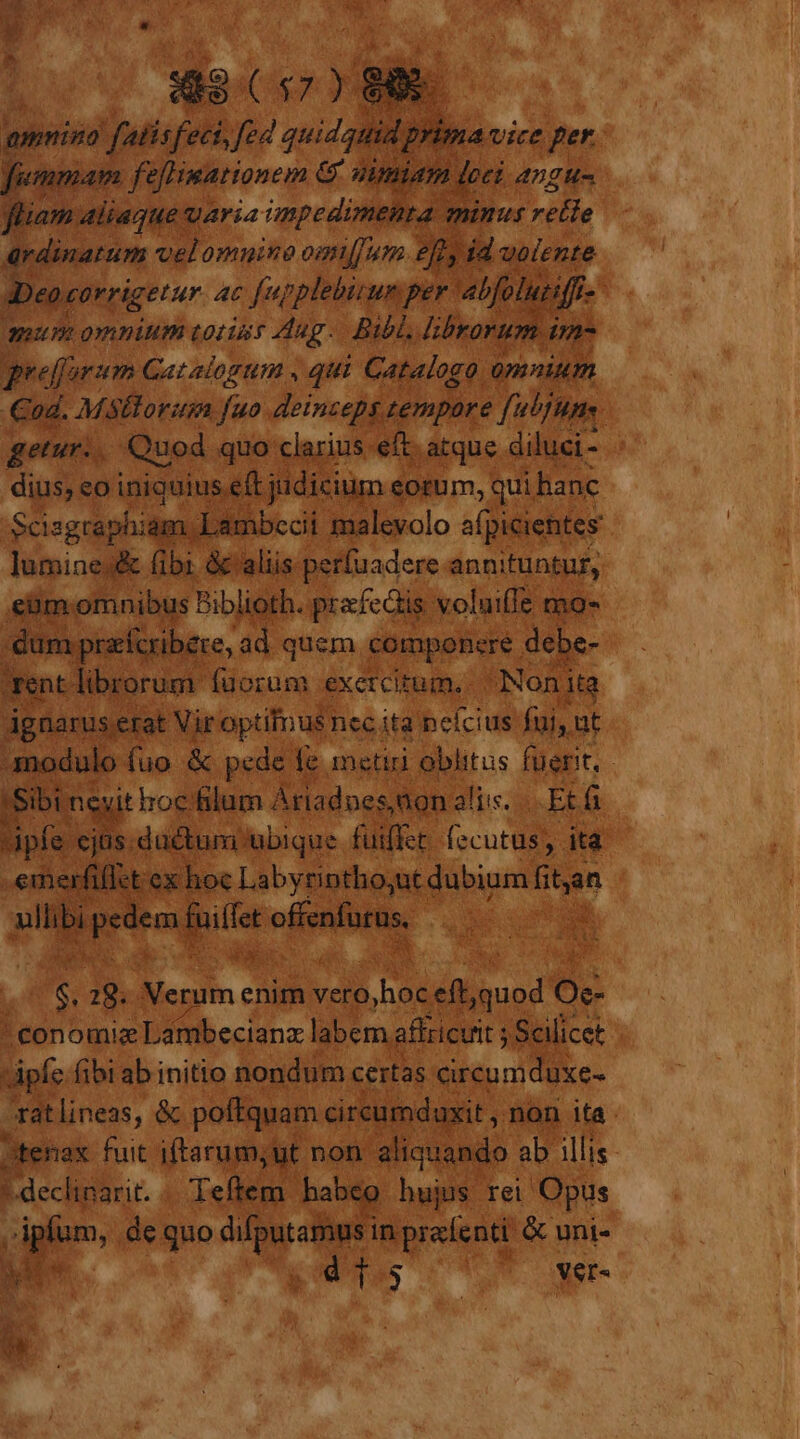 ( 57 )
omnino ſatisfeci, ſed quidquid prima vice per
ſummam feſtinationem & nimiam loci angu-
ſtiam aliaque varia impedimenta minus recte
ordinatum vel omnino omiſſum eſt, id volente
Deo corrigetur ac ſupplebitur per abſolutiſſi-
mum omnium totius Aug. Bibl. librorum im-
preſſorum Catalogum, qui Catalogo omnium
Cod. MSStorum ſuo deinceps tempore ſubjun-
getur. Quod quo clarius eſt atque diluci-
dius, eo iniquius eſt judicium eorum, qui hanc
Sciagraphiam Lambecii malevolo aſpicientes
lumine & ſibi & aliis perſuadere annituntur,
eum omnibus Biblioth. præfectis voluiſſe mo-
dum præſcribere, ad quem componere debe-
rent librorum ſuorum exercitum. Non ita
ignarus erat Vir optimus nec ita neſcius ſui, ut
modulo ſuo & pede ſe metiri oblitus fuerit.
Sibi nevit hoc filum Ariadnes, non aliis. Et ſi
ipſe ejus ductum ubique fuiſſet ſecutus, ita
emerſiſſet ex hoc Labyrintho, ut dubium ſit, an
ullibi pedem fuiſſet offenſurus.
§. 28. Verum enim vero, hoc eſt, quod Oe-
conomiæ Lambecianæ labem affricuit; Scilicet
ipſe ſibi ab initio nondum certas circumduxe-
rat lineas, & poſtquam circumduxit, non ita
tenax fuit iſtarum, ut non aliquando ab illis
declinarit. Teſtem habeo hujus rei Opus
ipſum, de quo diſputamus in præſenti & uni-
d † 5 ver-